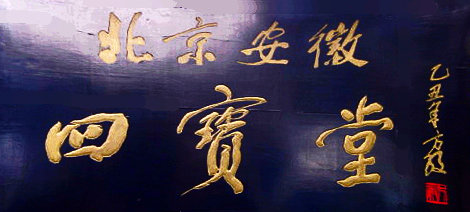 北京安徽
四寶堂
乙丑年方毅